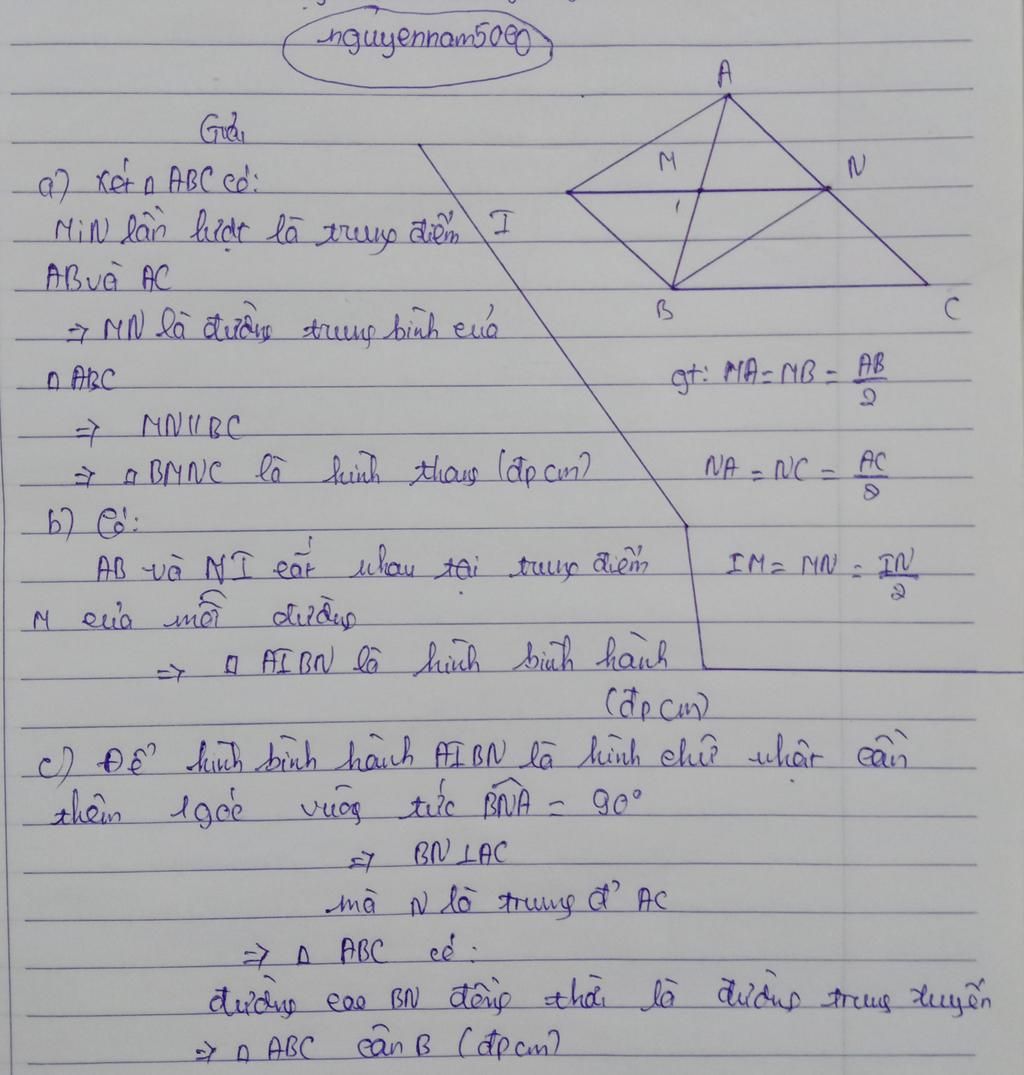 nguyennam5000
Giải
a) Xét △ ABC có:
M;N lần lượt là trung điểm
AB và AC
⇒ MN là đường trung bình của
△ ABC
⇒ MN//BC
⇒ □ BMNC là hình thang (đpcm)
b) Có:
AB và NI cắt nhau tại trung điểm
M của mỗi đường
⇒ □ AIBN là hình bình hành
(đpcm)
A
M
N
I
B
C
gt: MA = MB = AB/2
NA = NC = AC/2
IM = MN = IN/2
c) Để hình bình hành AIBN là hình chữ nhật cần
thêm 1 góc vuông tức BNA = 90°
⇒ BN ⊥ AC
mà N là trung đ' AC
⇒ △ ABC có:
đường cao BN đồng thời là đường trung tuyến
⇒ △ ABC cân B (đpcm)